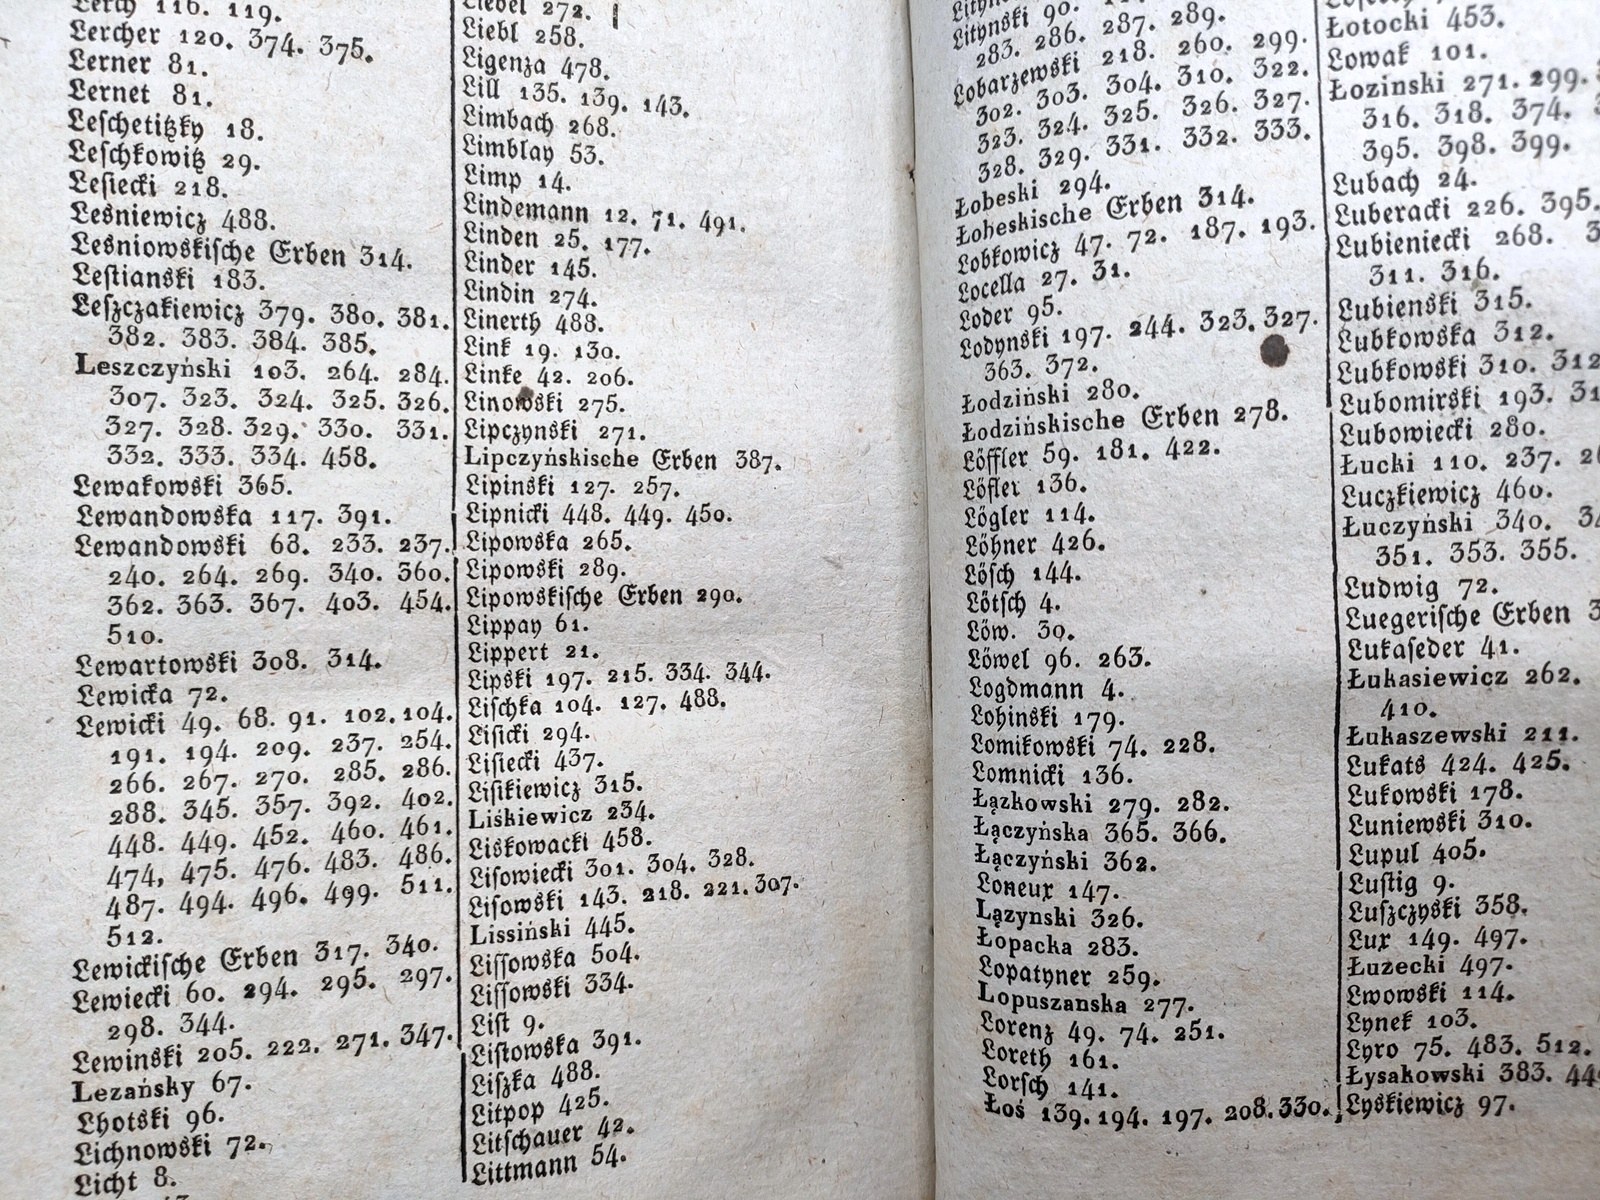 Lerch 116. 119.
Lercher 120. 374. 375.
Lerner 81.
Lernet 81.
Leſchetitzky 18.
Leſchkowitz 29.
Leſiecki 218.
Lesniewicz 488.
Lesniowskiſche Erben 314.
Leſtianski 183.
Leſzczakiewicz 379. 380. 381.
382. 383. 384. 385.
Leszczyński 103. 264. 284.
307. 323. 324. 325. 326.
327. 328. 329. 330. 331.
332. 333. 334. 458.
Lewakowski 365.
Lewandowska 117. 391.
Lewandowski 68. 233. 237.
240. 264. 269. 340. 360.
362. 363. 367. 403. 454.
510.
Lewartowski 308. 314.
Lewicka 72.
Lewicki 49. 68. 91. 102. 104.
191. 194. 209. 237. 254.
266. 267. 270. 285. 286.
288. 345. 357. 392. 402.
448. 449. 452. 460. 461.
474, 475. 476. 483. 486.
487. 494. 496. 499. 511.
512.
Lewickiſche Erben 317. 340.
Lewiecki 60. 294. 295. 297.
298. 344.
Lewinski 205. 222. 271. 347.
Lezańsky 67.
Lhotski 96.
Lichnowski 72.
Licht 8.
Liebel 272.
Liebl 258.
Ligenza 478.
Lill 135. 139. 143.
Limbach 268.
Limblay 53.
Limp 14.
Lindemann 12. 71. 491.
Linden 25. 177.
Linder 145.
Lindin 274.
Linerth 488.
Link 19. 130.
Linke 42. 206.
Linowski 275.
Lipczynski 271.
Lipczyńskische Erben 387.
Lipinski 127. 257.
Lipnicki 448. 449. 450.
Lipowska 265.
Lipowski 289.
Lipowskiſche Erben 290.
Lippay 61.
Lippert 21.
Lipski 197. 215. 334. 344.
Liſchka 104. 127. 488.
Liſicki 294.
Liſiecki 437.
Liſikiewicz 315.
Liśkiewicz 234.
Liskowacki 458.
Liſowiecki 301. 304. 328.
Liſowski 143. 218. 221. 307.
Lissiński 445.
Liſſowska 504.
Liſſowski 334.
Liſt 9.
Liſtowska 391.
Liſzka 488.
Litpop 425.
Litſchauer 42.
Littmann 54.
Litynski 90.
283. 286. 287. 289.
Lobarzewski 218. 260. 299.
302. 303. 304. 310. 322.
323. 324. 325. 326. 327.
328. 329. 331. 332. 333.
Łobeski 294.
Łobeskische Erben 314.
Lobkowicz 47. 72. 187. 193.
Locella 27. 31.
Loder 95.
Lodynski 197. 244. 323. 327.
363. 372.
Łodziński 280.
Łodzińskische Erben 278.
Löffler 59. 181. 422.
Löfler 136.
Lögler 114.
Löhner 426.
Löſch 144.
Lötſch 4.
Löw. 30.
Löwel 96. 263.
Logdmann 4.
Lohinski 179.
Lomikowski 74. 228.
Lomnicki 136.
Łązkowski 279. 282.
Łączyńska 365. 366.
Łączyński 362.
Loneux 147.
Lązynski 326.
Łopacka 283.
Lopatyner 259.
Lopuszanska 277.
Lorenz 49. 74. 251.
Loreth 161.
Lorſch 141.
Łoś 139. 194. 197. 208. 330.
Łotocki 453.
Lowak 101.
Łozinski 271. 299.
316. 318. 374.
395. 398. 399.
Lubach 24.
Luberacki 226. 395.
Lubieniecki 268.
311. 316.
Lubienski 315.
Lubkowska 312.
Lubkowski 310. 312
Lubomirski 193.
Lubowiecki 280.
Łucki 110. 237.
Luczkiewicz 460.
Łuczyński 340.
351. 353. 355.
Ludwig 72.
Luegeriſche Erben
Lukaſeder 41.
Łukasiewicz 262.
410.
Łukaszewski 211.
Lukats 424. 425.
Lukowski 178.
Luniewski 310.
Lupul 405.
Luſtig 9.
Luſzczyski 358.
Lux 149. 497.
Łuzecki 497.
Lwowski 114.
Lynek 103.
Lyro 75. 483. 512.
Łysakowski 383.
Lyskiewicz 97.